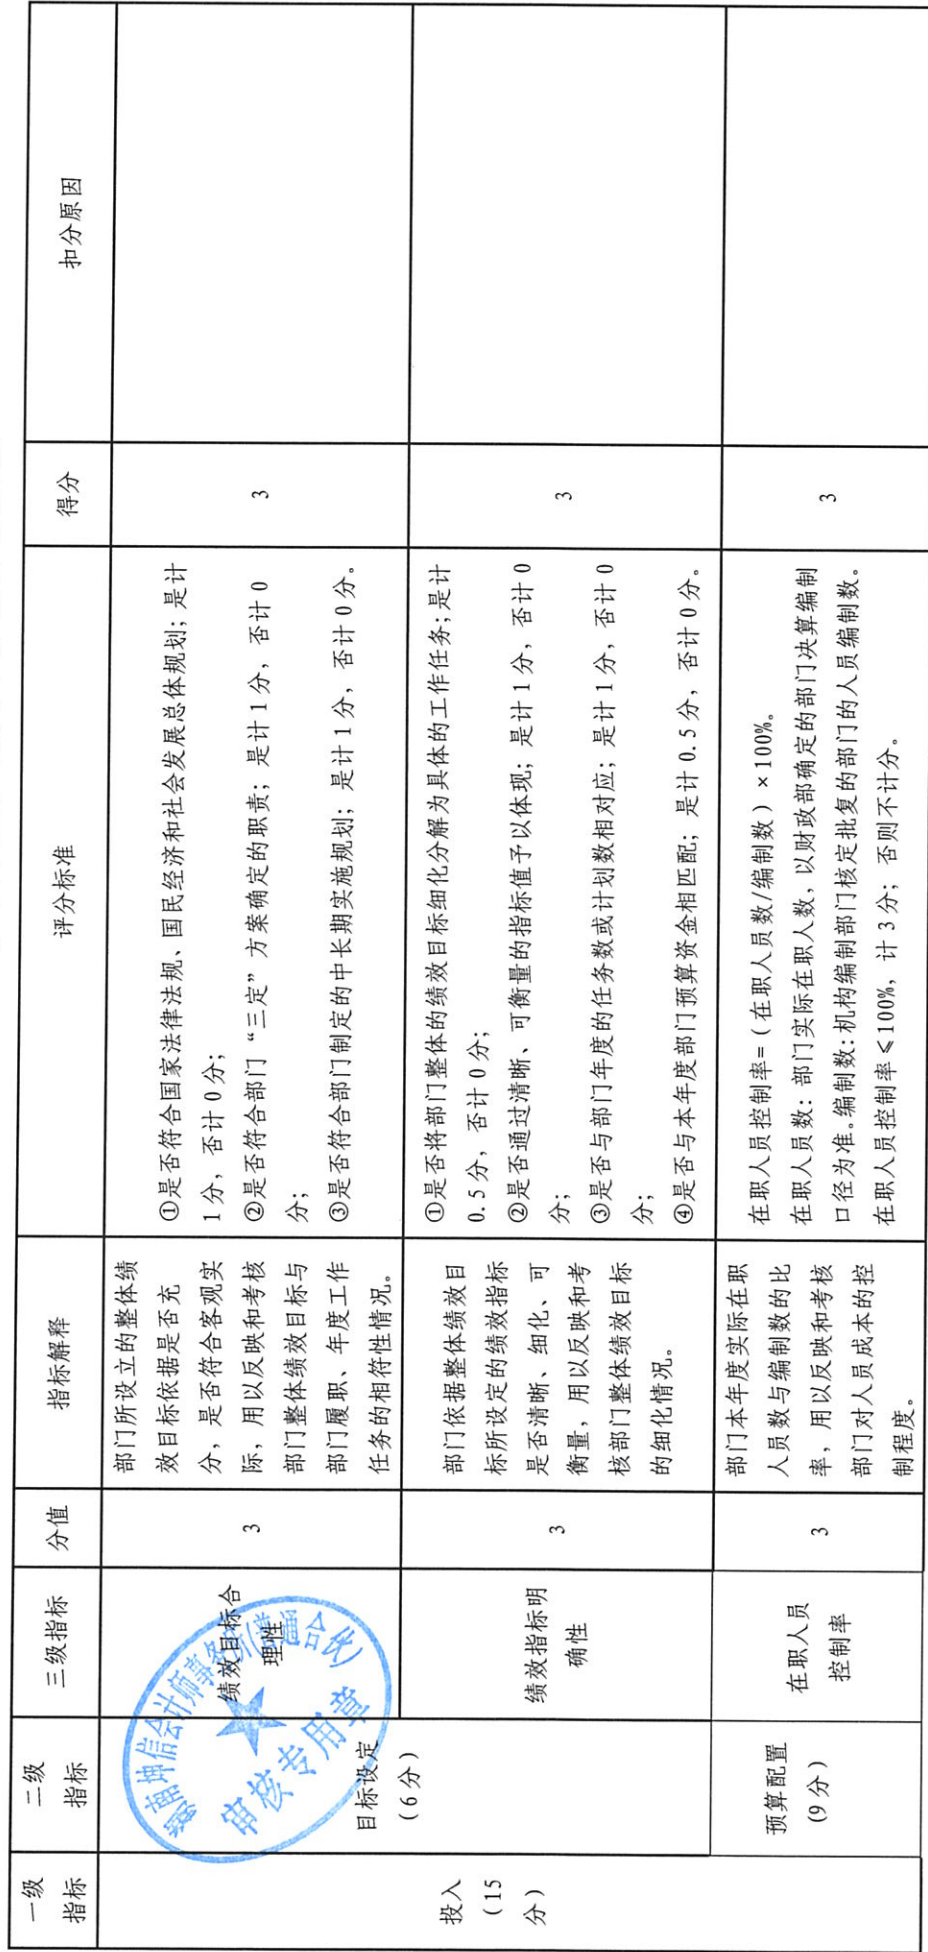 一级
指标
二级
指标
三级指标
分值
指标解释
评分标准
得分
扣分原因
投入
(15
分)
目标设定
(6分)
绩效目标合
理性
3
部门所设立的整体绩
效目标依据是否充
分，是否符合客观实
际，用以反映和考核
部门整体绩效目标与
部门履职、年度工作
任务的相符性情况。
①是否符合国家法律法规、国民经济和社会发展总体规划；是计
1分，否计0分；
②是否符合部门“三定”方案确定的职责；是计1分，否计0
分；
③是否符合部门制定的中长期实施规划；是计1分，否计0分。
3
绩效指标明
确性
3
部门依据整体绩效目
标所设定的绩效指标
是否清晰、细化、可
衡量，用以反映和考
核部门整体绩效目标
的细化情况。
①是否将部门整体的绩效目标细化分解为具体的工作任务；是计
0.5分，否计0分；
②是否通过清晰、可衡量的指标值予以体现；是计1分，否计0
分；
③是否与部门年度的任务数或计划数相对应；是计1分，否计0
分；
④是否与本年度部门预算资金相匹配；是计0.5分，否计0分。
3
预算配置
(9分)
在职人员
控制率
3
部门本年度实际在职
人员数与编制数的比
率，用以反映和考核
部门对人员成本的控
制程度。
在职人员控制率=（在职人员数/编制数）×100%。
在职人员数：部门实际在职人数，以财政部确定的部门决算编制
口径为准。编制数：机构编制部门核定批复的部门的人员编制数。
在职人员控制率≤100%，计3分；否则不计分。
3
坤信会计师事务所(普通合伙)
审核专用章